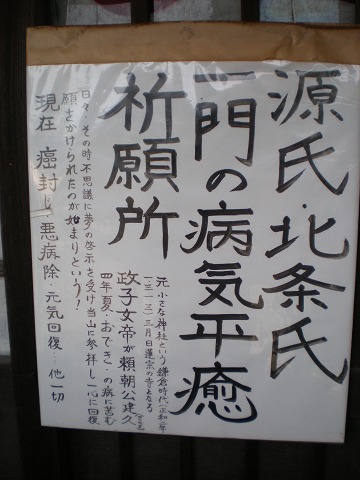 源氏・北条氏
一門の病気平癒
祈願所
元 小さな神社という 鎌倉時代(正和二年
一三一三)三月日蓮宗の寺となる
政子女帝が頼朝公建久
四年夏・おでき・の病に苦む
日々・その時不思議に夢の啓示を受け当山に参拝し一心に回復
願をかけられたのが始まりという!
現在 癌封じ・悪病除・元気回復…他一切